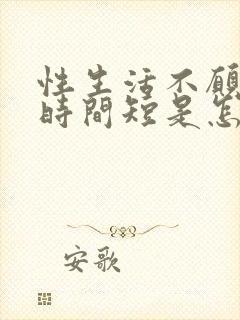 性生活不願
時間短是怎
安歌